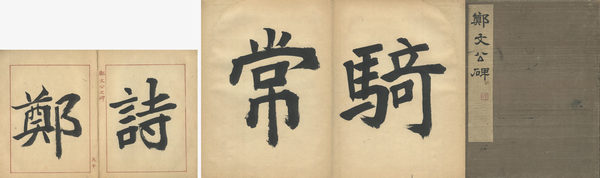 詩
鄭
鄭文公之碑
騎
常
鄭文公碑